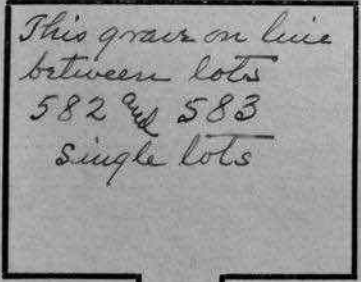 This grave on line
between lots
582 and 583
single lots